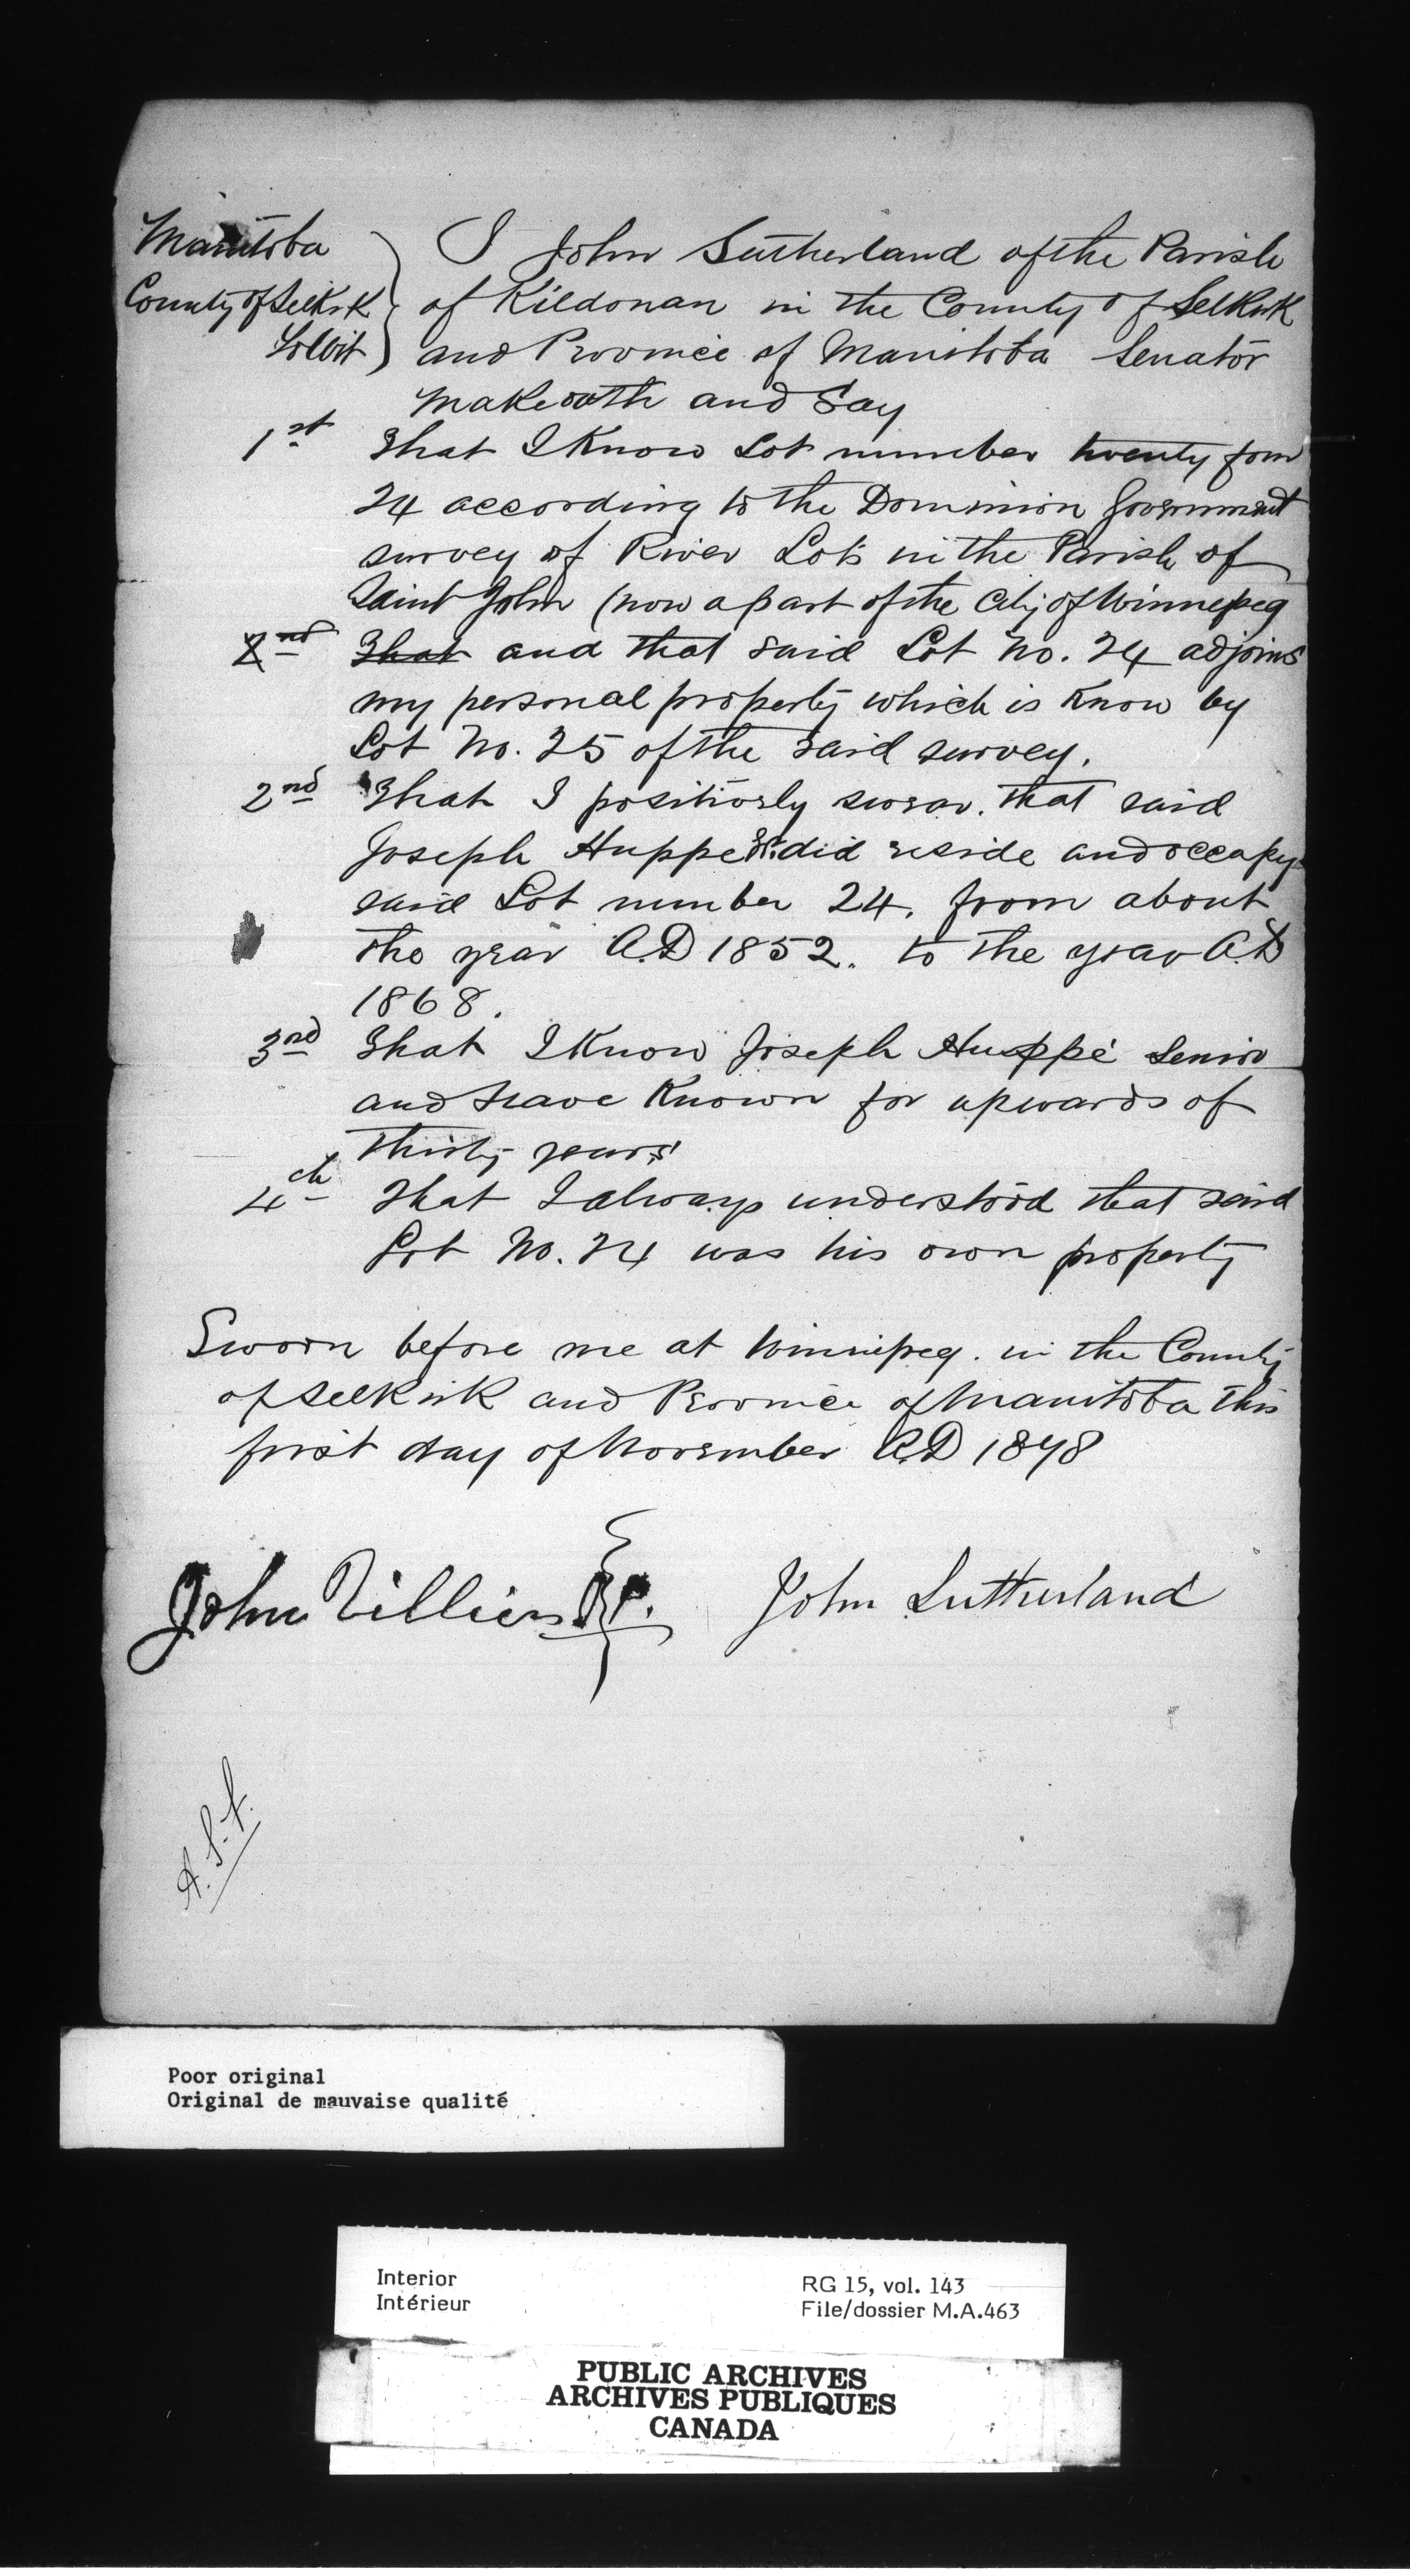 Manitoba
County of Selkirk
To Wit
I John Sutherland of the Parish
of Kildonan in the County of Selkirk
and Province of Manitoba Senator
make oath and Say
1st That I Know Lot number twenty four
24 according to the Dominion Government
survey of River Lots in the Parish of
Saint John (now a part of the City of Winnepeg
2nd That and that said Lot No. 24 adjoins
my personal property which is Know by
Lot No. 25 of the said survey.
2nd That I positively swear. that said
Joseph Huppe Sr. did reside and occupy
said Lot number 24. from about
the year A.D 1852. to the year A.D
1868.
3rd That I Know Joseph Huppé Senior
and have Known for upwards of
thirty years
4th That I always understood that said
Lot No. 24 was his own property
Sworn before me at Winnipeg. in the County
of Selkirk and Province of Manitoba this
first day of November A.D 1878
John Villiers J.P. John Sutherland
Poor original
Original de mauvaise qualité
Interior
Intérieur
RG 15, vol. 143
File/dossier M.A.463
PUBLIC ARCHIVES
ARCHIVES PUBLIQUES
CANADA